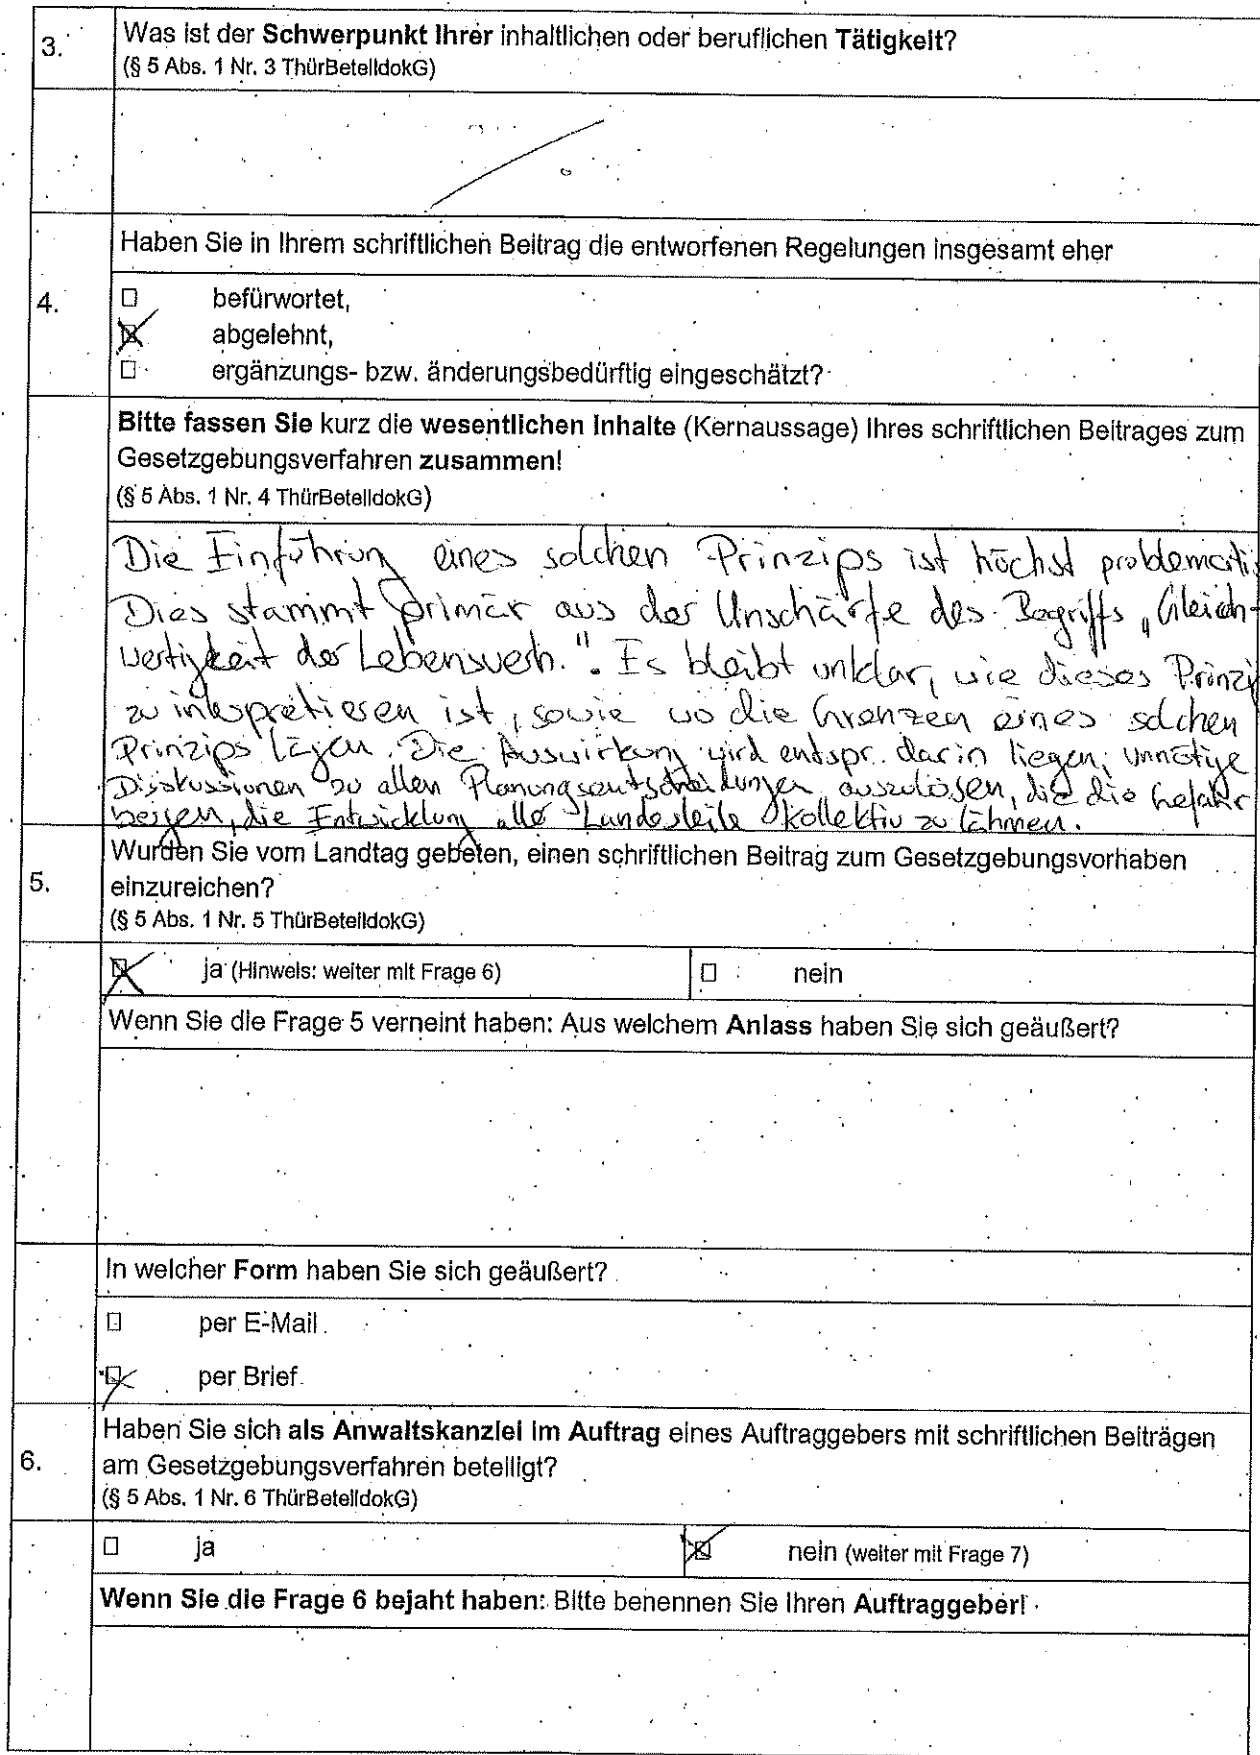 3.
Was ist der Schwerpunkt Ihrer inhaltlichen oder beruflichen Tätigkeit?
(§ 5 Abs. 1 Nr. 3 ThürBeteildokG)
Haben Sie in Ihrem schriftlichen Beitrag die entworfenen Regelungen insgesamt eher
4.
befürwortet,
abgelehnt,
ergänzungs- bzw. änderungsbedürftig eingeschätzt?
Bitte fassen Sie kurz die wesentlichen Inhalte (Kernaussage) Ihres schriftlichen Beitrages zum
Gesetzgebungsverfahren zusammen!
(§ 5 Abs. 1 Nr. 4 ThürBeteildokG)
Die Einführung eines solchen Prinzips ist höchst problemati
Dies stammt primär aus der Unschärfe des Begriffs „Gleich-
wertigkeit der Lebensverh.". Es bleibt unklar, wie dieses Prinzi
zu interpretieren ist, sowie wo die Grenzen eines solchen
Prinzips lägen. Die Auswirkung wird entspr. darin liegen, unnötige
Diskussionen zu allen Planungsentscheidungen auszulösen, die die Gefahr
bergen, die Entwicklung aller Landesteile kollektiv zu lähmen.
Wurden Sie vom Landtag gebeten, einen schriftlichen Beitrag zum Gesetzgebungsvorhaben
5.
einzureichen?
(§ 5 Abs. 1 Nr. 5 ThürBeteildokG)
ja (Hinweis: weiter mit Frage 6)
nein
Wenn Sie die Frage 5 verneint haben: Aus welchem Anlass haben Sie sich geäußert?
In welcher Form haben Sie sich geäußert?
per E-Mail
per Brief
Haben Sie sich als Anwaltskanzlei im Auftrag eines Auftraggebers mit schriftlichen Beiträgen
6.
am Gesetzgebungsverfahren beteiligt?
(§ 5 Abs. 1 Nr. 6 ThürBeteildokG)
ja
nein (weiter mit Frage 7)
Wenn Sie die Frage 6 bejaht haben: Bitte benennen Sie Ihren Auftraggeber!